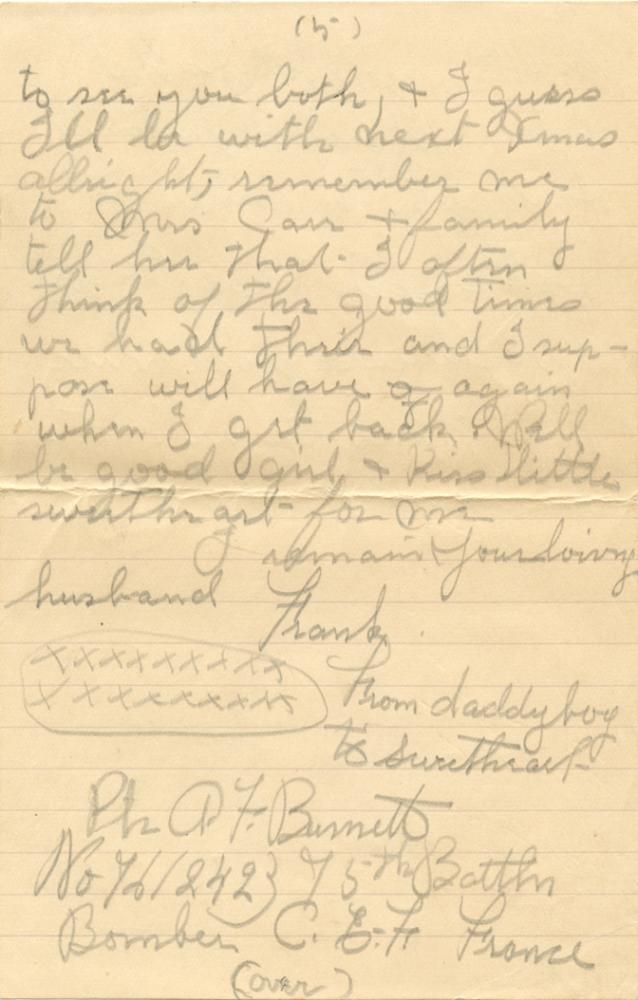 (5)
to see you both, & I guess
I'll be with next Xmas
allright, remember me
to Mrs Carr & family
tell her that I often
think of the good times
we had their and I sup-
pose will have again
when I get back. Well
be good girl & kiss little
sweetheart for me
I remain Your loving
husband Frank.
xxxxxxxxx
xxxxxxxxx
From daddy boy
to sweetheart
Pte A F. Burnett
75th Battln
Bomber C. E. F. France
(over)